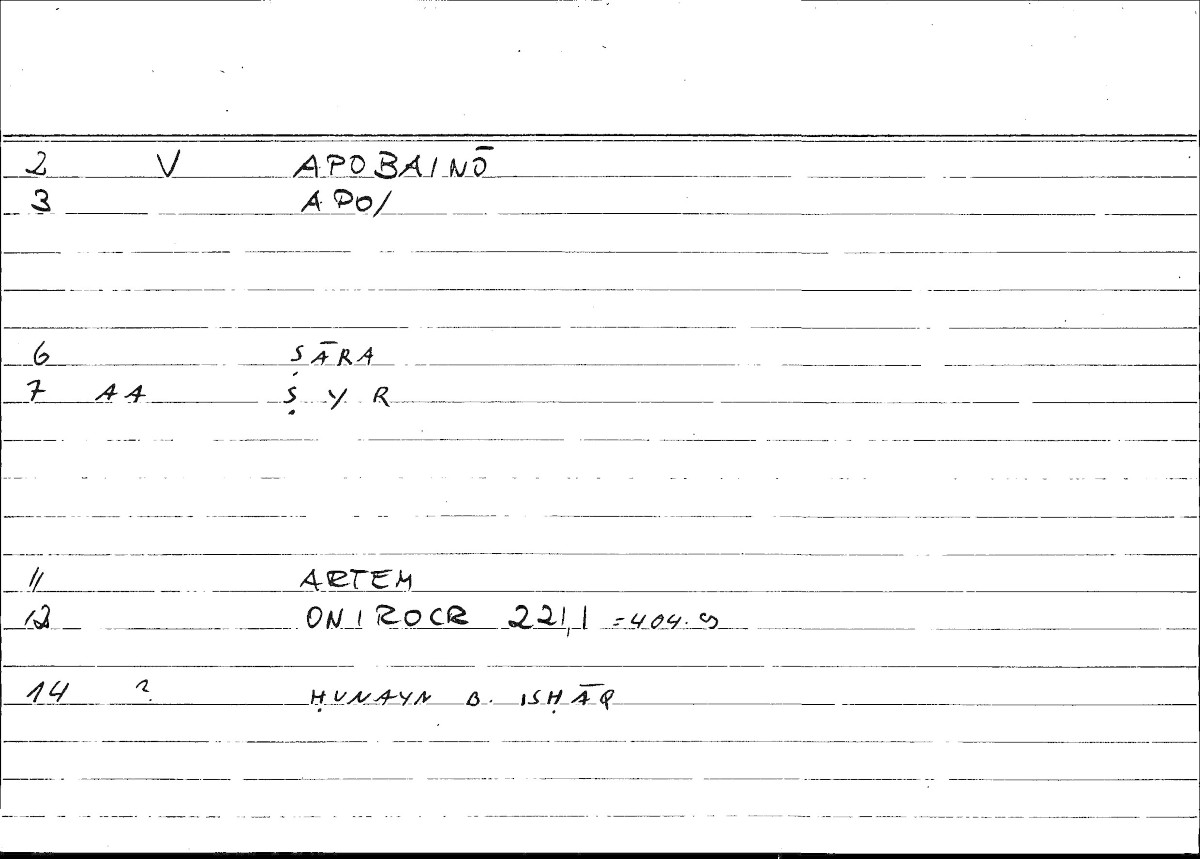 2 V APOBAINŌ
3 APO/
6 ṢĀRA
7 AA Ṣ Y R
11 ARTEM
12 ONIROCR 221,1 =404.9
14 ? ḤUNAYN B. ISḤĀQ